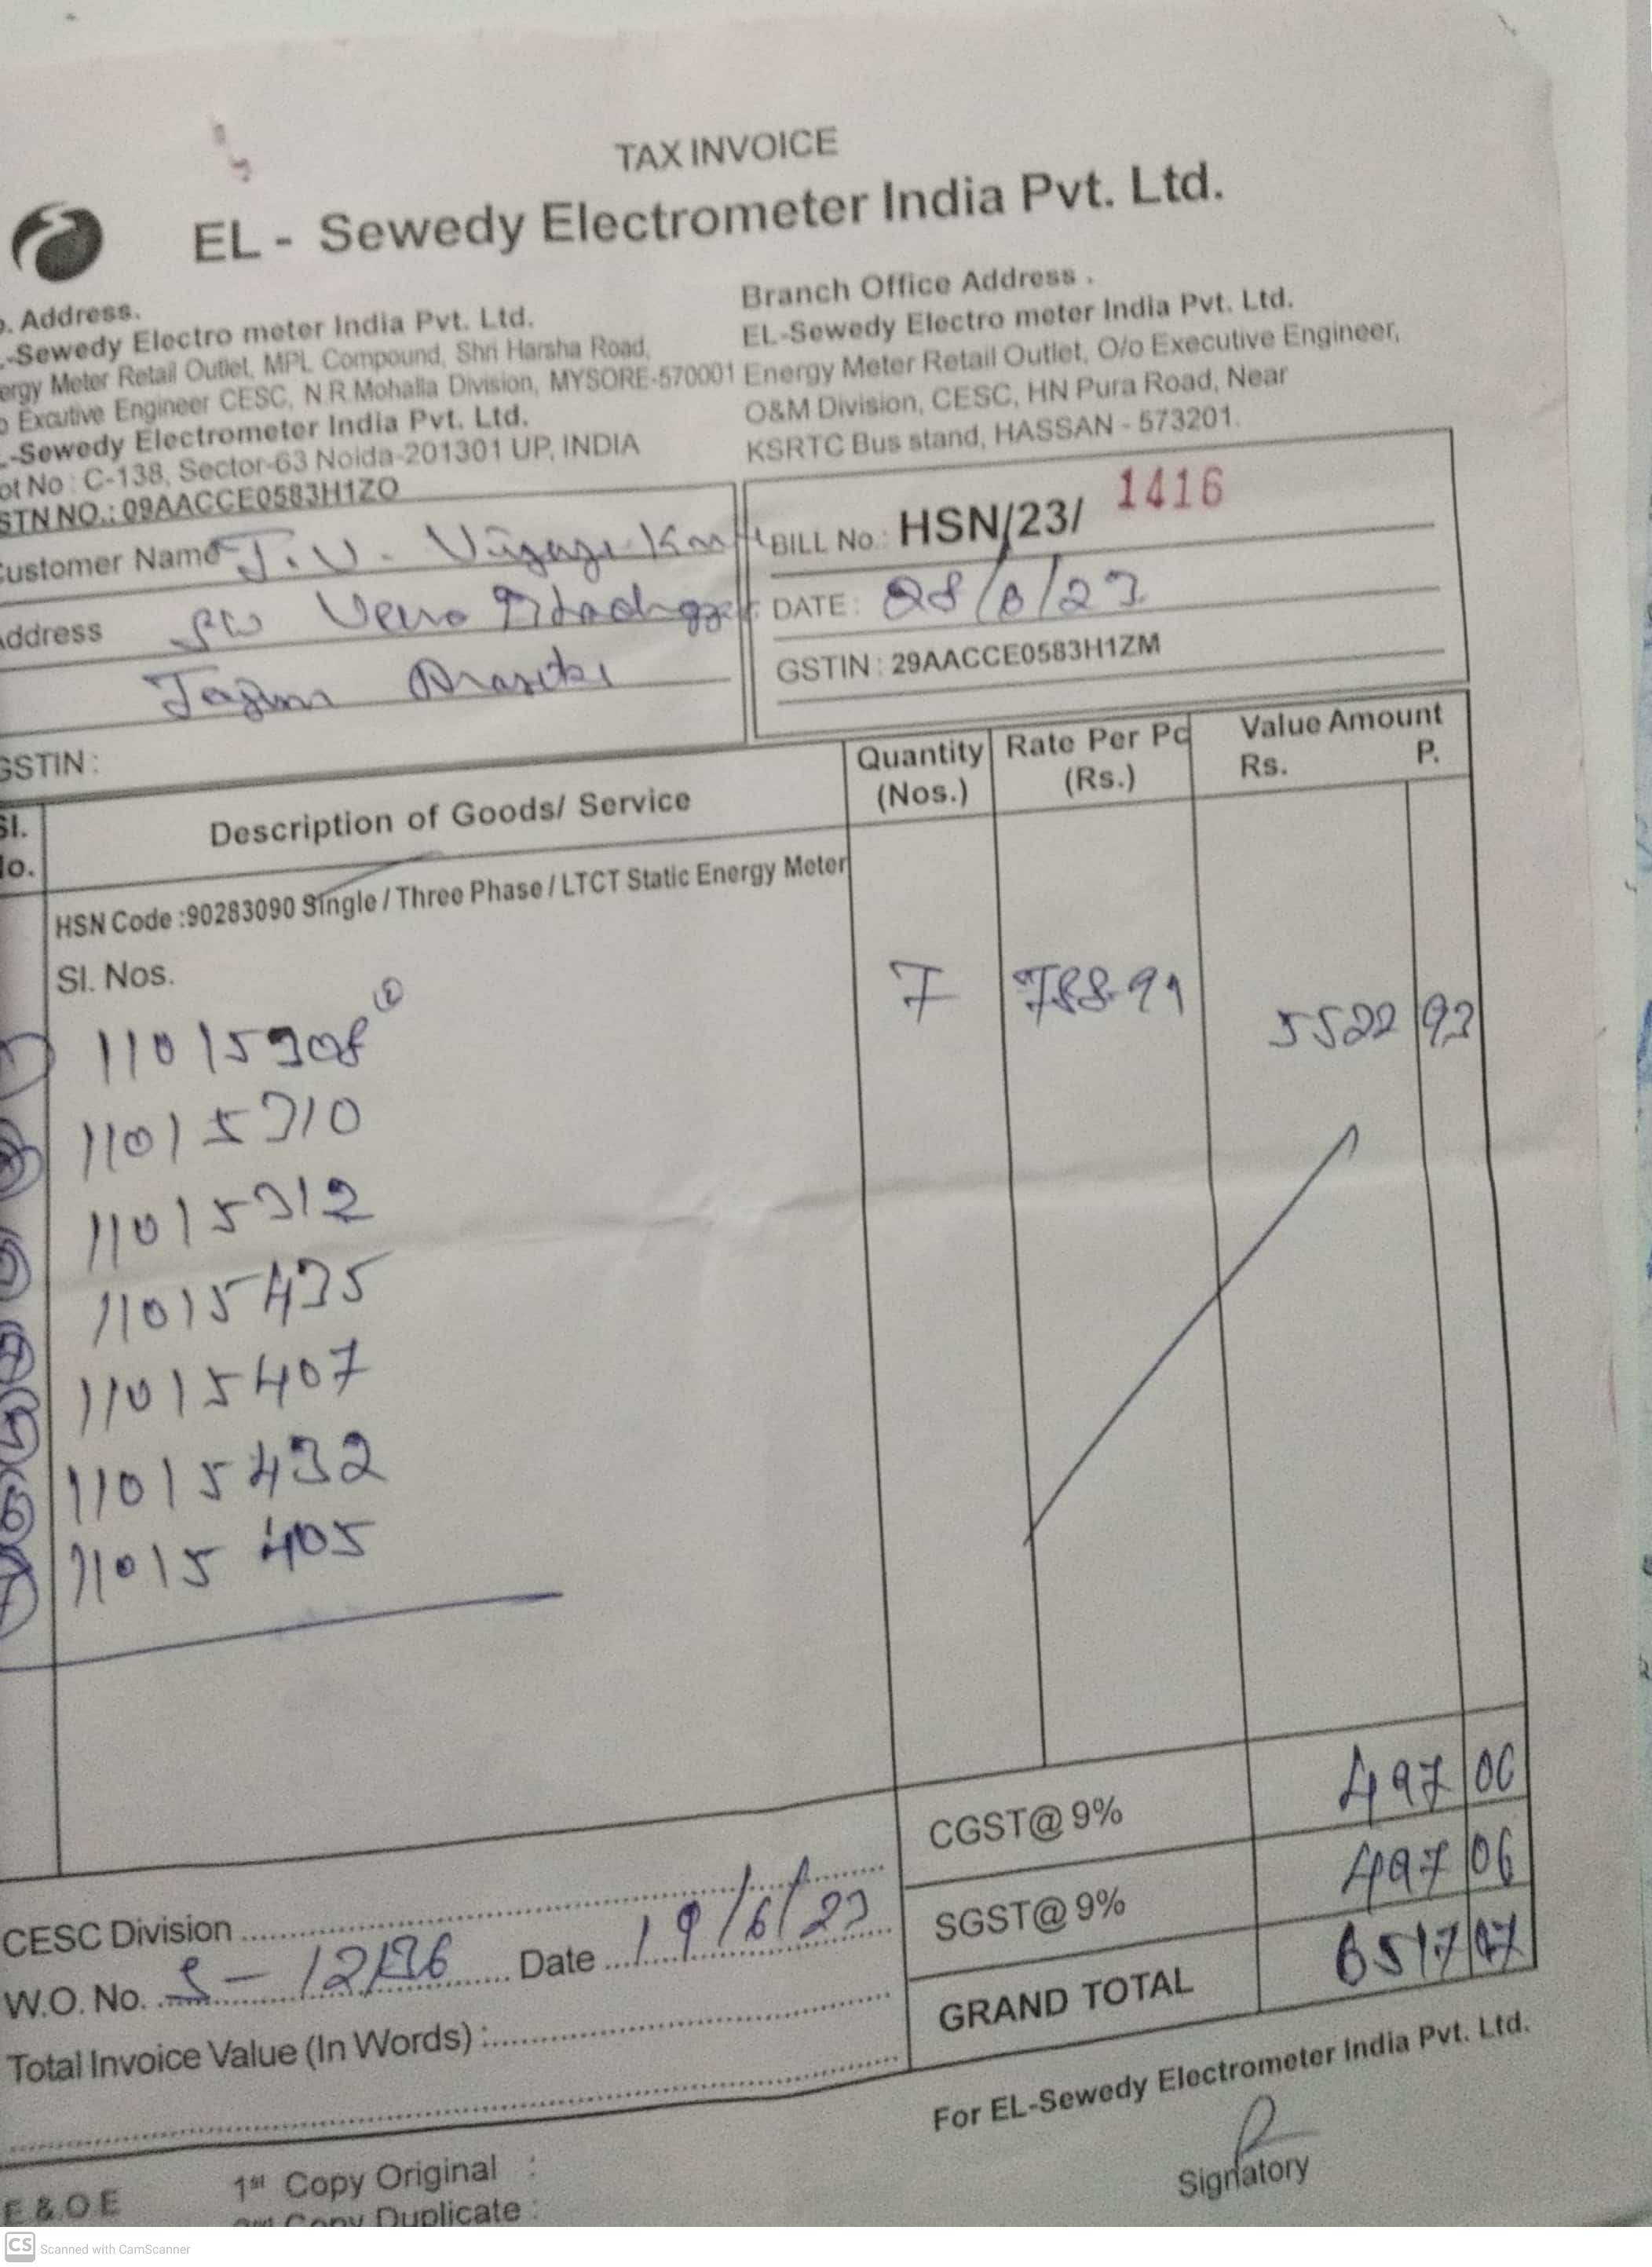 TAX INVOICE
EL - Sewedy Electrometer India Pvt. Ltd.
. Address.
-Sewedy Electro meter India Pvt. Ltd.
ergy Meter Retail Outlet, MPL Compound, Shri Harsha Road,
o Excutive Engineer CESC, N.R.Mohalla Division, MYSORE-570001
-Sewedy Electrometer India Pvt. Ltd.
ot No : C-138, Sector-63 Noida-201301 UP, INDIA
STN NO.: 09AACCE0583H1ZO
Branch Office Address .
EL-Sewedy Electro meter India Pvt. Ltd.
Energy Meter Retail Outlet, O/o Executive Engineer,
O&M Division, CESC, HN Pura Road, Near
KSRTC Bus stand, HASSAN - 573201.
ustomer Name
ddress
GSTIN :
BILL No.: HSN/23/ 1416
DATE : 28/6/23
GSTIN : 29AACCE0583H1ZM
Sl. No.
Description of Goods/ Service
Quantity (Nos.)
Rate Per Pc (Rs.)
Value Amount
Rs. P.
HSN Code :90283090 Single / Three Phase / LTCT Static Energy Meter
Sl. Nos.
7 788.99 5522 93
11015308
11015310
11015312
11015435
11015407
11015432
11015405
CGST@ 9% 497 06
SGST@ 9% 497 06
GRAND TOTAL 6517 07
CESC Division
W.O. No. Date 19/6/23
Total Invoice Value (In Words) :
For EL-Sewedy Electrometer India Pvt. Ltd.
Signatory
E & O E
1st Copy Original :
2nd Copy Duplicate :
CS Scanned with CamScanner